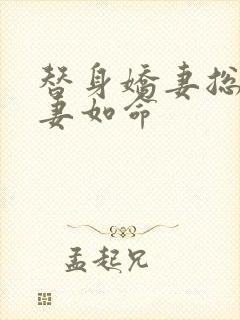 替身娇妻总
妻如命
孟起兄